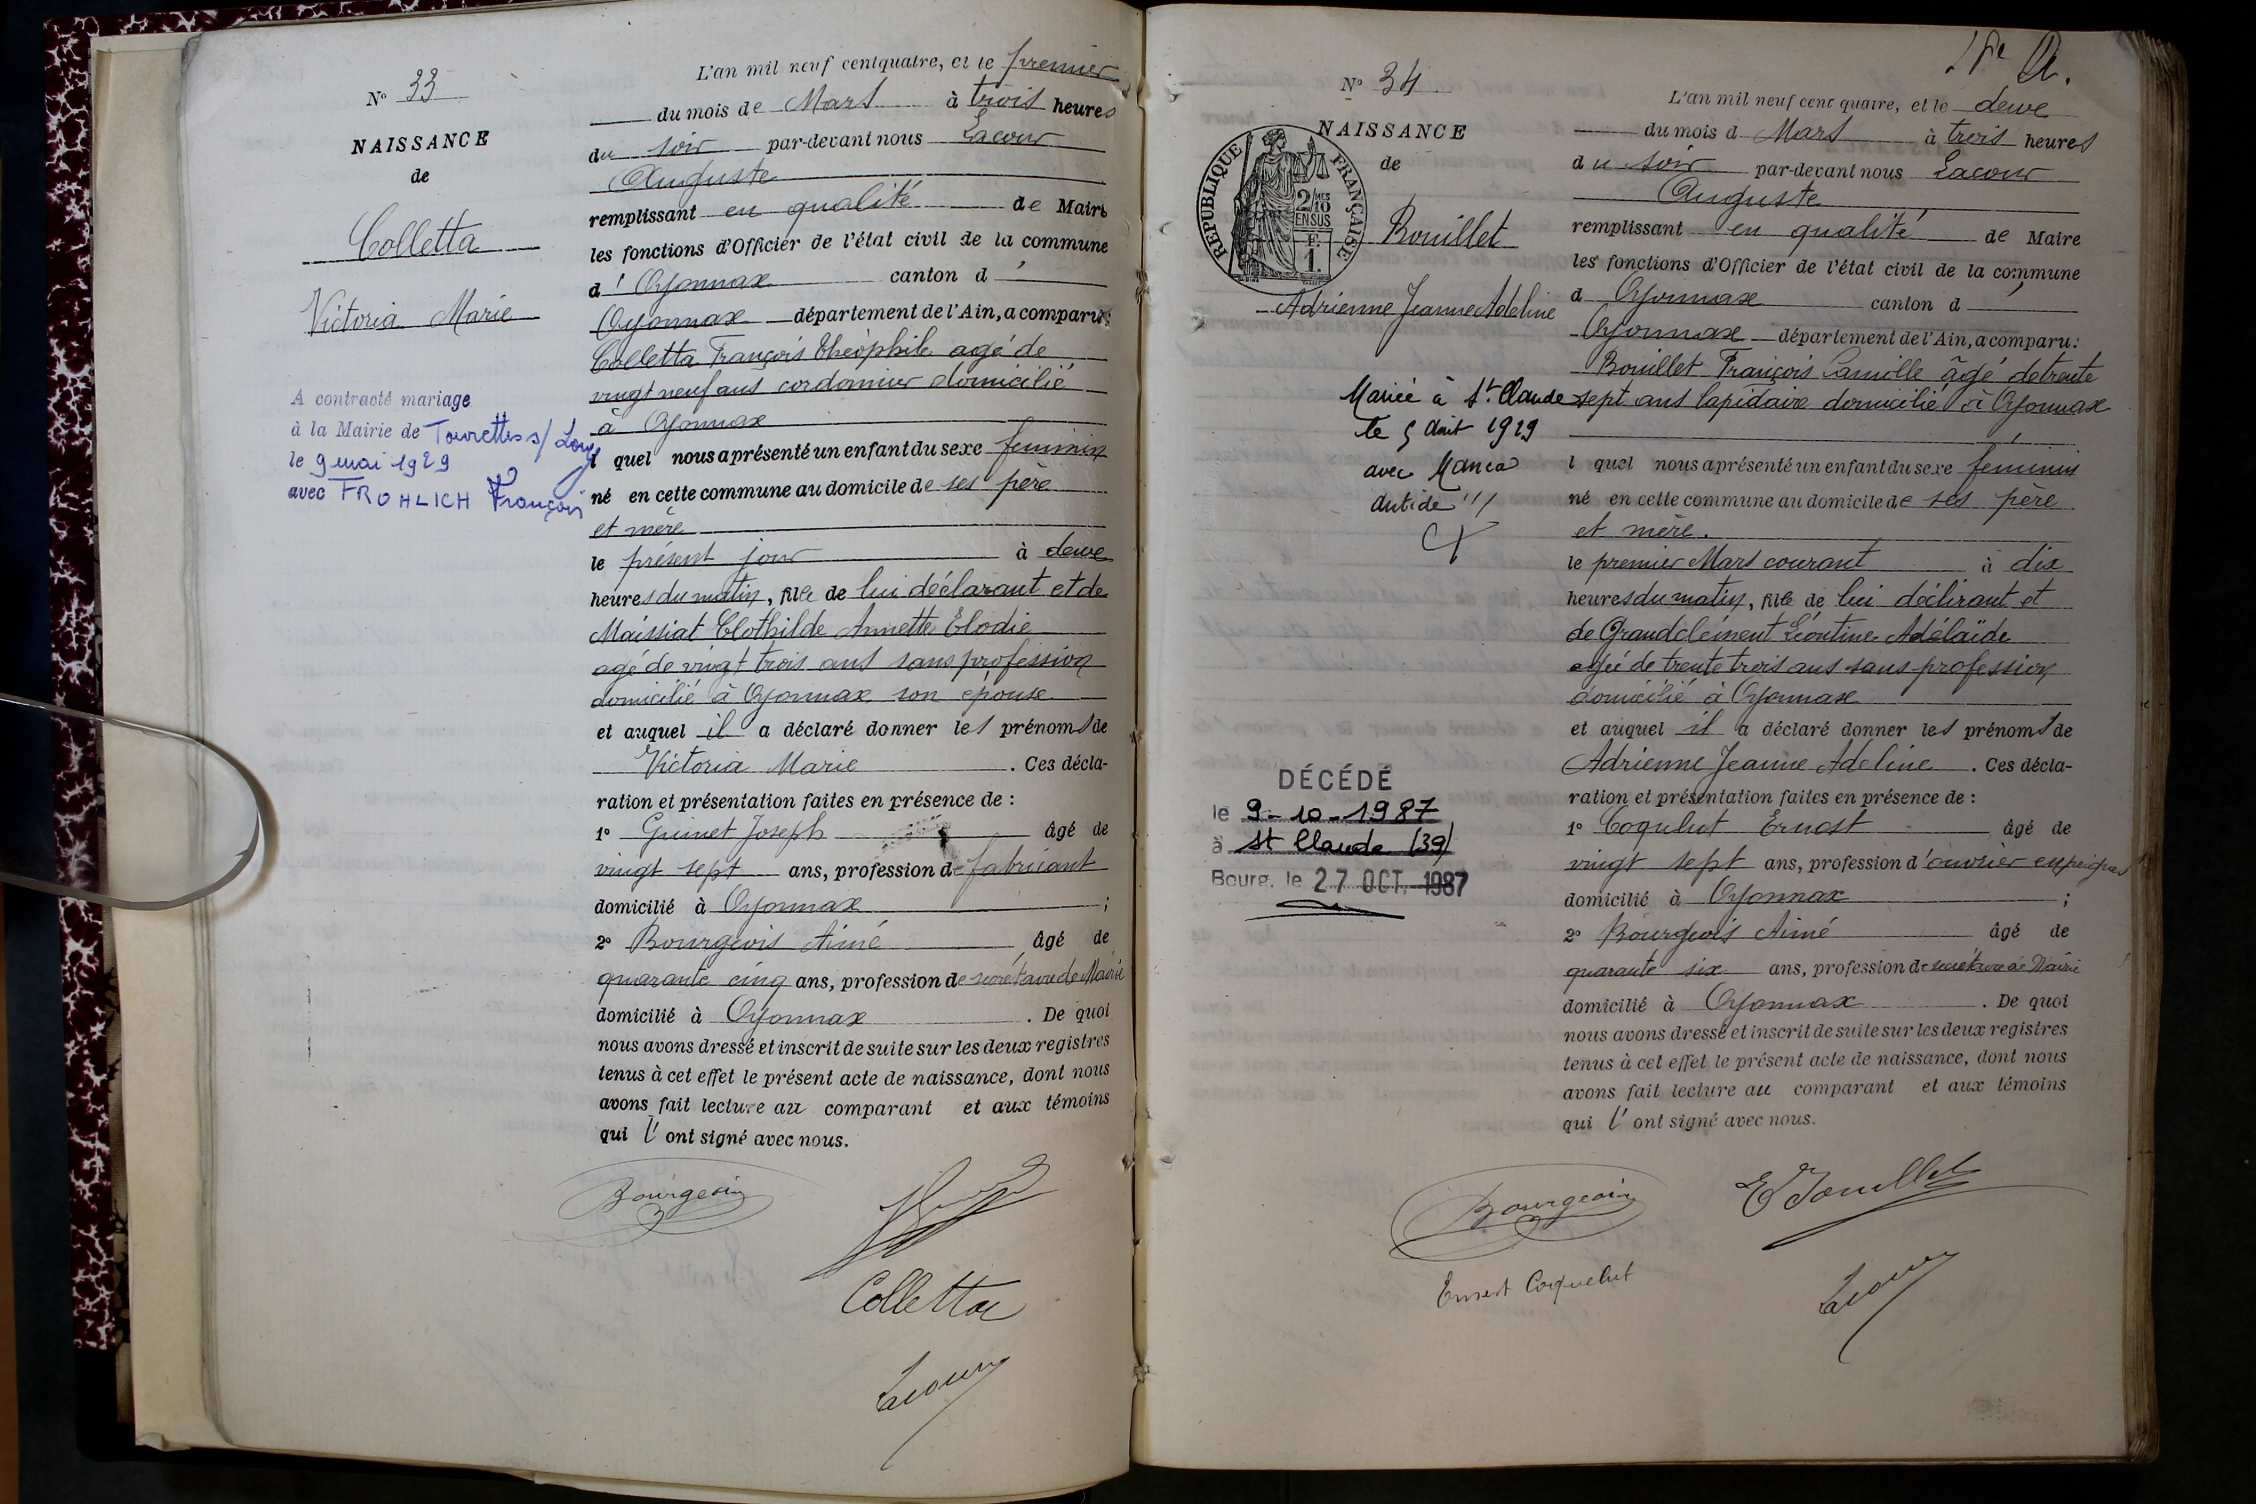 N° 33
NAISSANCE
de
Colletta
Victoria Marie
A contracté mariage
à la Mairie de Tourettes s/ Loup
le 9 mai 1929
avec FROHLICH François
L'an mil neuf cent quatre, et le premier
du mois de Mars à trois heures
du soir par-devant nous Lacour
Auguste
remplissant en qualité de Maire
les fonctions d'Officier de l'état civil de la commune
d'Oyonnax canton d'
Oyonnax département de l'Ain, a comparu:
Colletta François Théophile agé de
vingt neuf ans cordonnier domicilié
à Oyonnax
l quel nous a présenté un enfant du sexe feminin
né en cette commune au domicile de ses père
et mère
le présent jour à deux
heures du matin, fille de lui déclarant et de
Maissiat Clothilde Annette Elodie
agé de vingt trois ans sans profession
domicilié à Oyonnax son épouse
et auquel il a déclaré donner les prénoms de
Victoria Marie. Ces décla-
ration et présentation faites en présence de :
1° Guinet Joseph âgé de
vingt sept ans, profession de fabricant
domicilié à Oyonnax ;
2° Bourgeois Aimé âgé de
quarante cinq ans, profession de secrétaire de Mairie
domicilié à Oyonnax. De quoi
nous avons dressé et inscrit de suite sur les deux registres
tenus à cet effet le présent acte de naissance, dont nous
avons fait lecture au comparant et aux témoins
qui l'ont signé avec nous.
Bourgeois
Colletta
Lacour
N° 34
NAISSANCE
de
RÉPUBLIQUE FRANÇAISE
2/10 MES
EN SUS
F.
1.
Bouillet
Adrienne Jeanne Adeline
Mariée à St Claude
le 5 Août 1929
avec Manca
DÉCÉDÉ
le 9-10-1987
à St Claude (39)
Bourg, le 27 OCT. 1987
L'an mil neuf cent quatre, et le deux
du mois d Mars à trois heures
du soir par-devant nous Lacour
Auguste
remplissant en qualité de Maire
les fonctions d'Officier de l'état civil de la commune
d Oyonnax canton d'
Oyonnax département de l'Ain, a comparu:
Bouillet François Camille âgé de trente
sept ans lapidaire domicilié à Oyonnax
l quel nous a présenté un enfant du sexe féminin
né en cette commune au domicile de ses père
et mère.
le premier Mars courant à dix
heures du matin, fille de lui déclarant et
de Grandclément Léontine Adélaïde
agée de trente trois ans sans profession
domicilié à Oyonnax
et auquel il a déclaré donner les prénoms de
Adrienne Jeanne Adeline. Ces décla-
ration et présentation faites en présence de :
1° Coquelut Ernest âgé de
vingt sept ans, profession d'ouvrier en peignes
domicilié à Oyonnax ;
2° Bourgeois Aimé âgé de
quarante six ans, profession de secrétaire de Mairie
domicilié à Oyonnax. De quoi
nous avons dressé et inscrit de suite sur les deux registres
tenus à cet effet le présent acte de naissance, dont nous
avons fait lecture au comparant et aux témoins
qui l'ont signé avec nous.
Bourgeois
Bouillet
Ernest Coquelut
Lacour